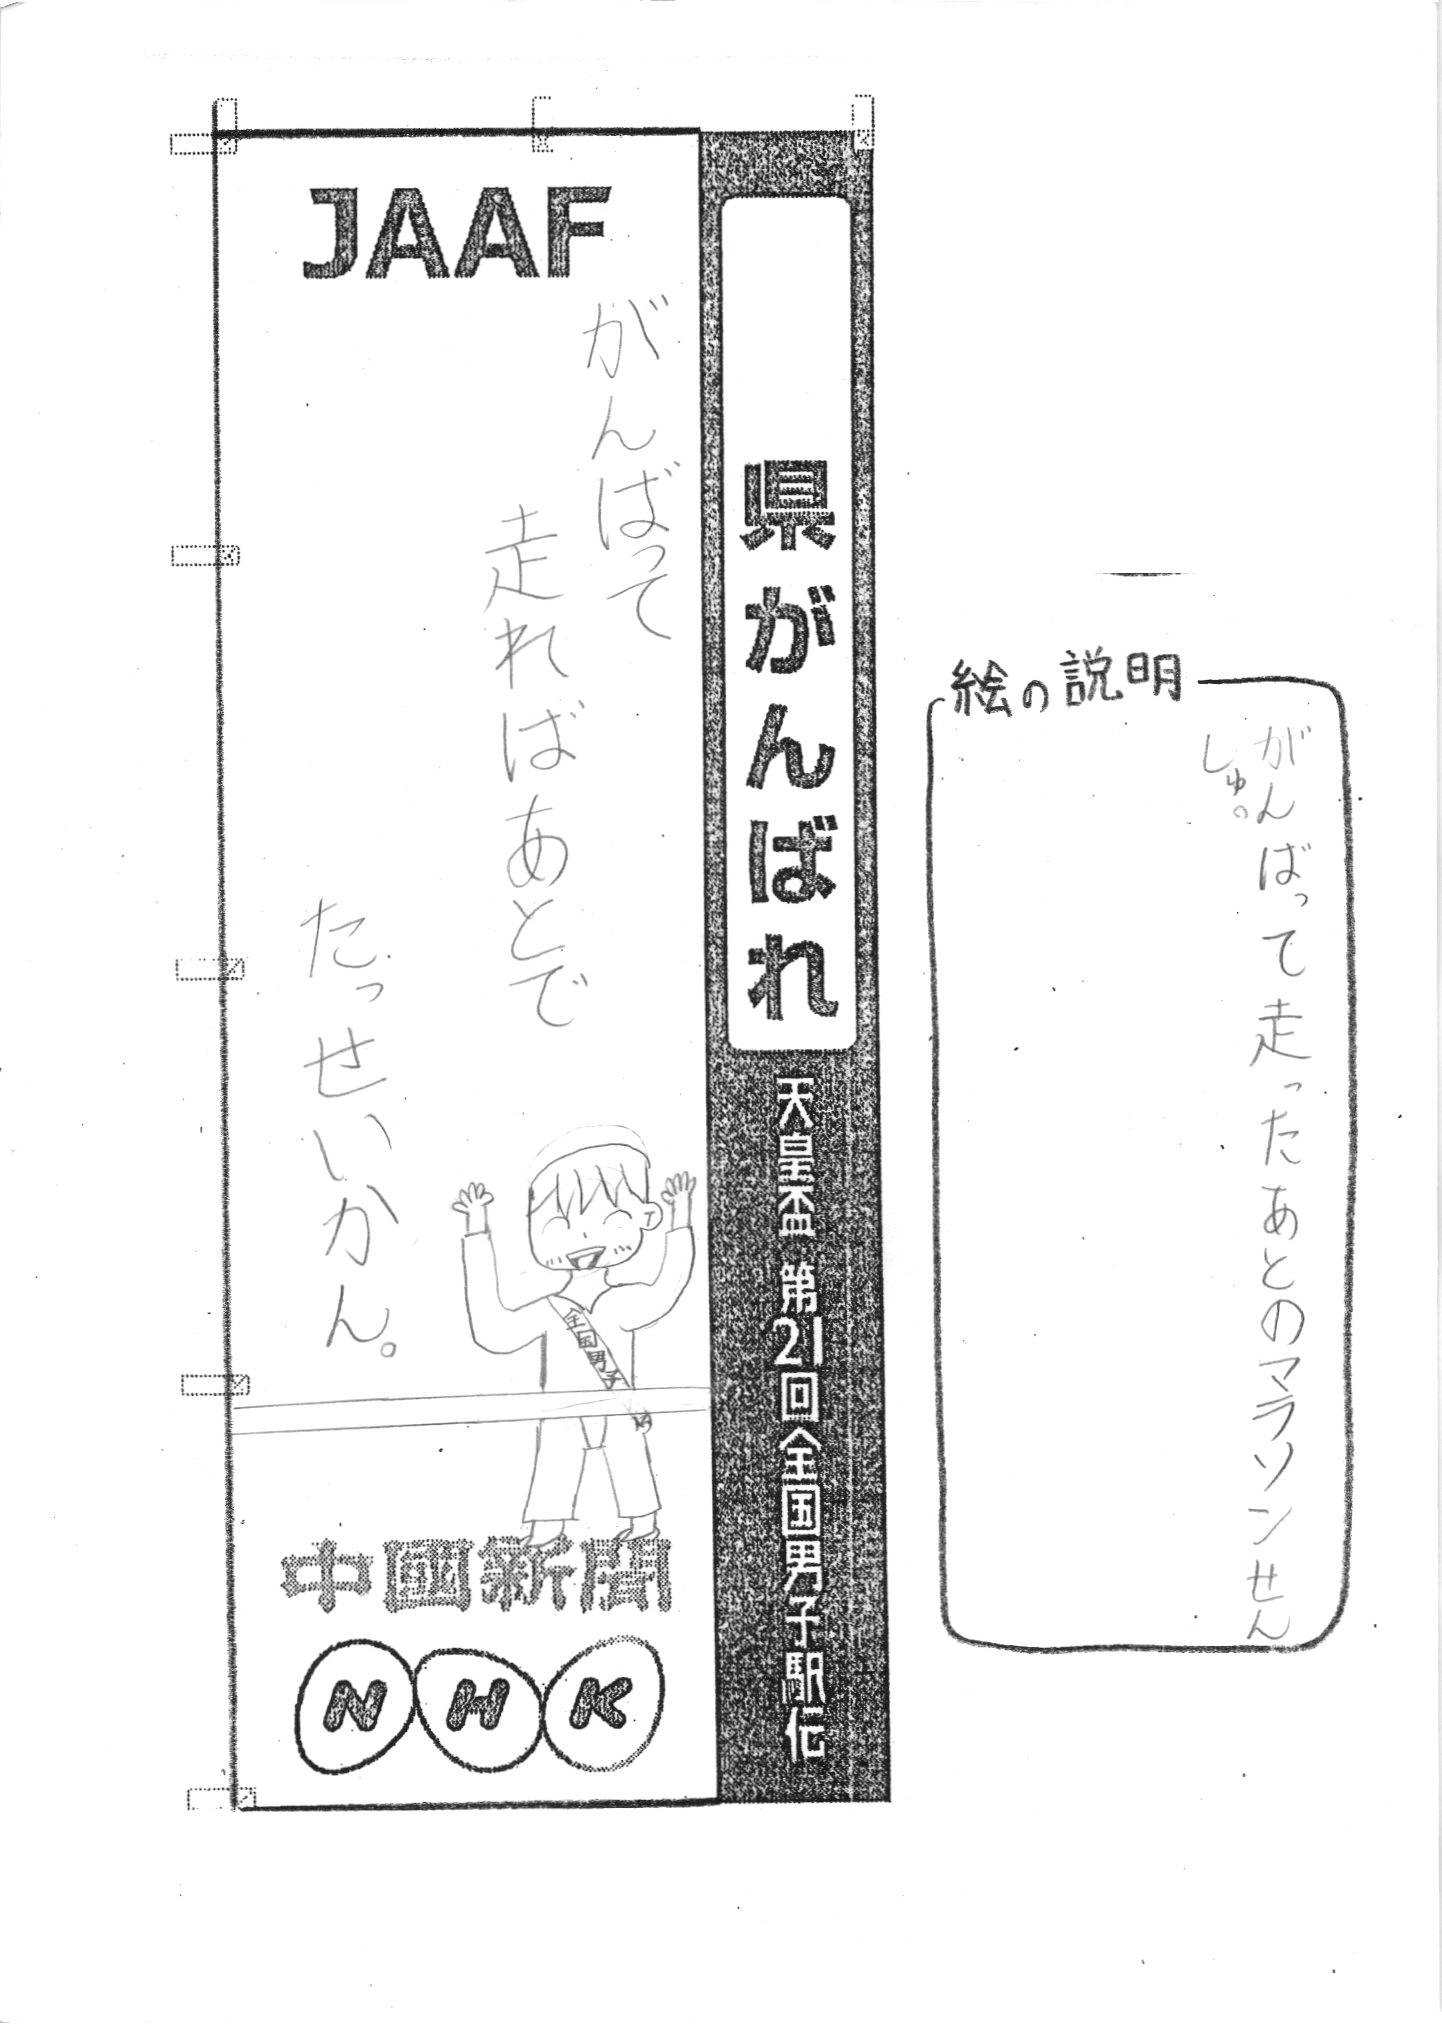 JAAF
県がんばれ
天皇盃 第21回全国男子駅伝
がんばって
走ればあとで
たっせいかん。
全国男子
中國新聞
NHK
絵の説明
がんばって走ったあとのマラソンせん
しゅ。